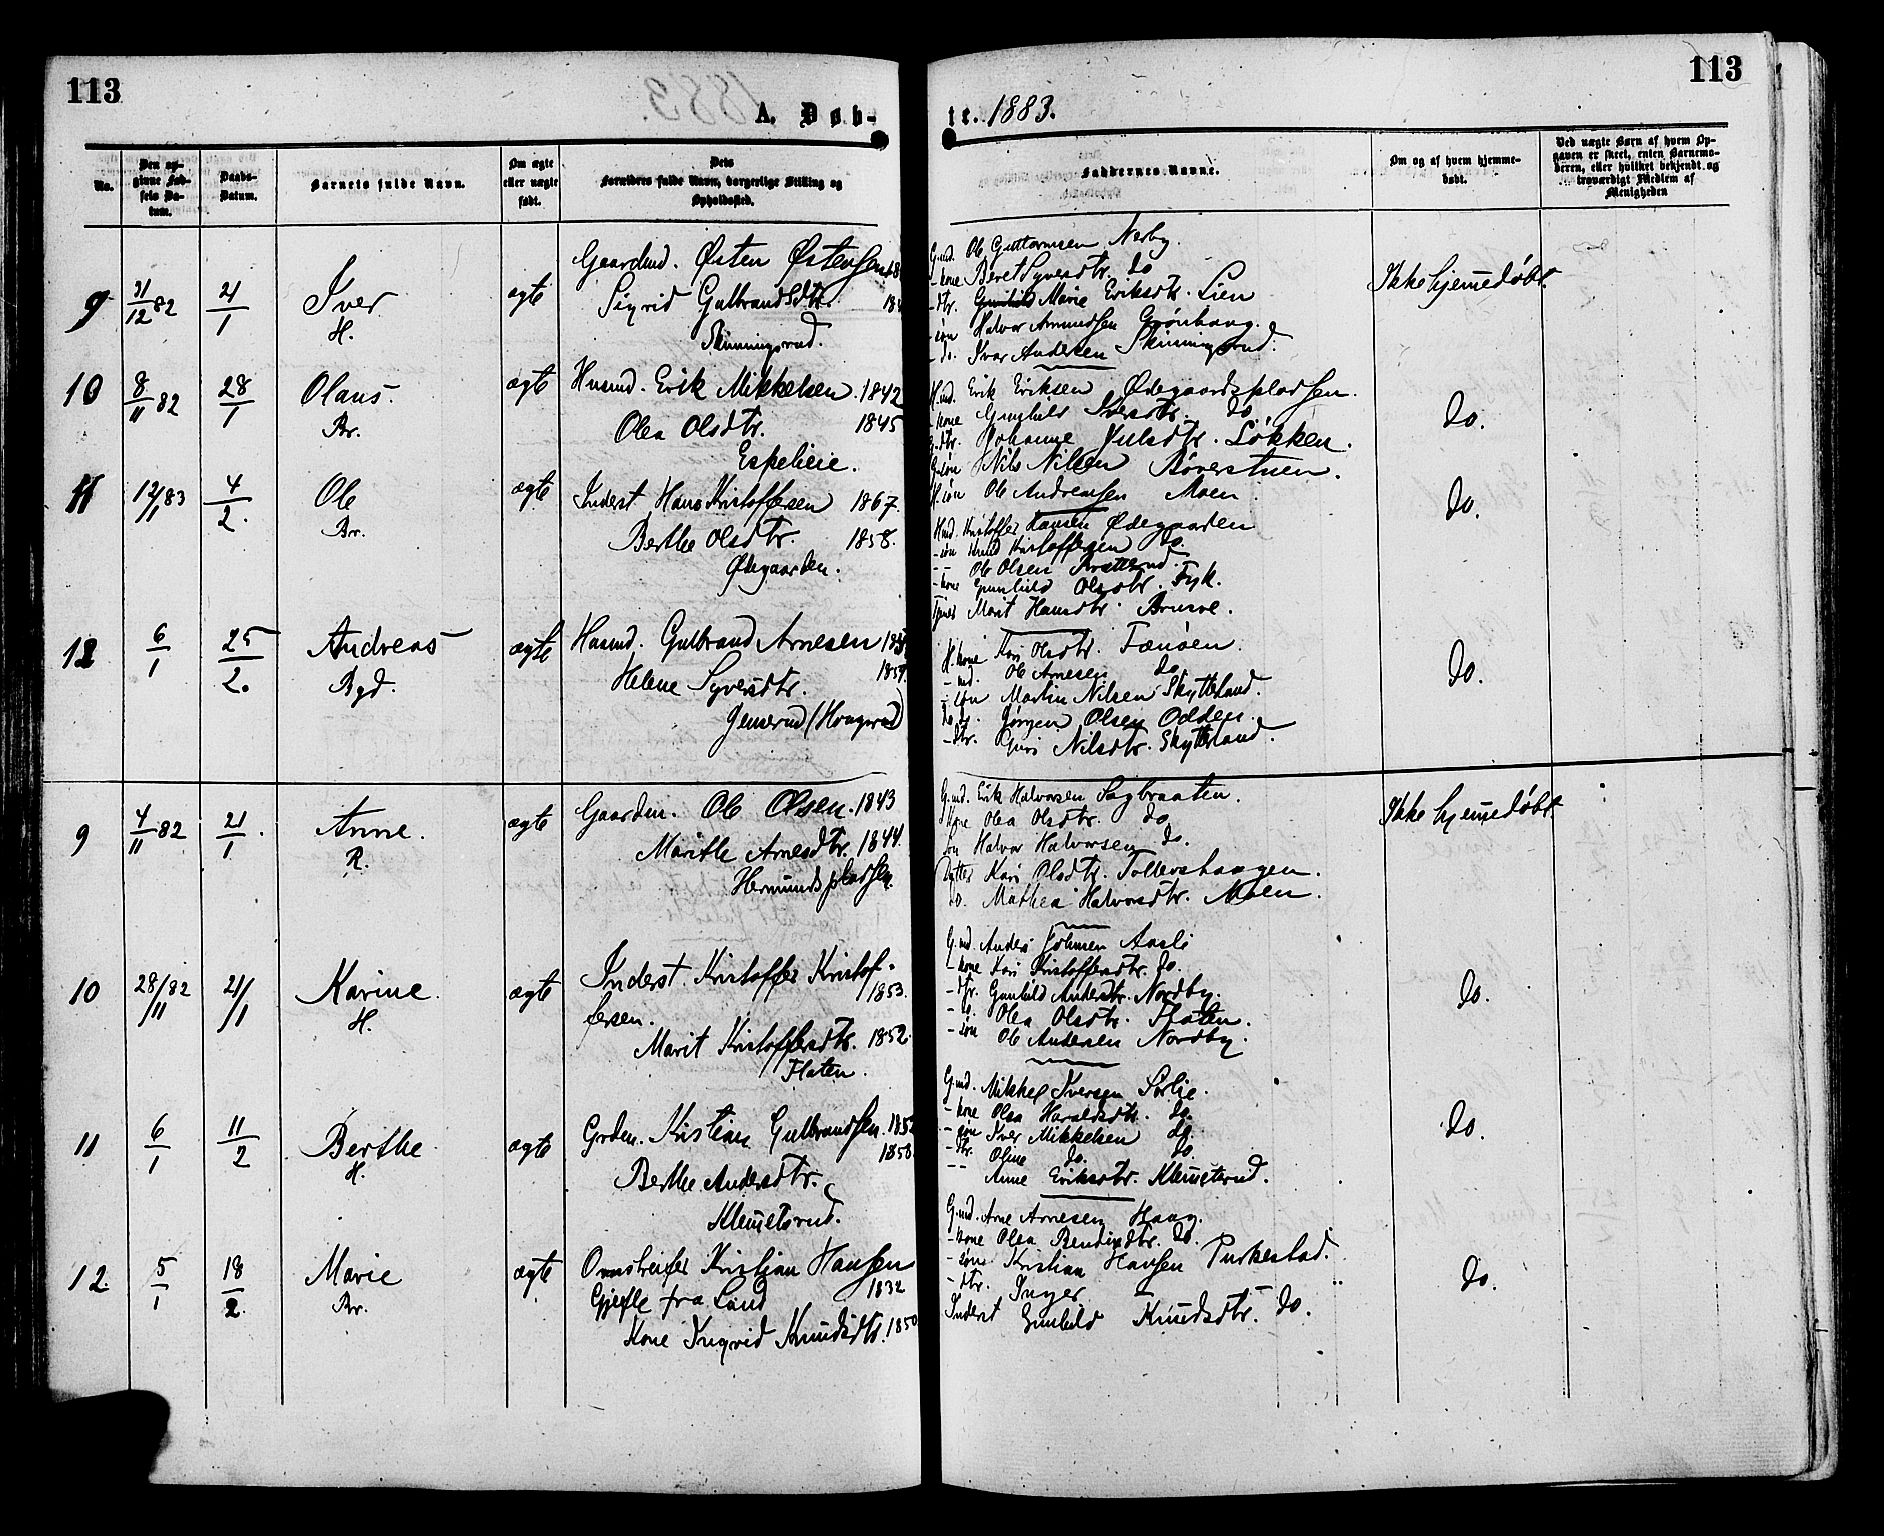 113
A. Døb-
te. 1883.
113
No.
Den op-
givne Fød-
sels Da-
tum.
Daabs-
Datum.
Barnets fulde Navn.
Om ægte
eller uægte
født.
Dets
Forældres fulde Navn, borgerlige Stilling og
Opholdssted.
Faddernes Navne.
Om og af hvem hjemme-
døbt.
Ved uægte Børn af hvem Op-
gaven er skeet, enten Barnemo-
deren, eller hvilket bekjendt og
troværdigt Medlem af
Menigheden
9
31/12 82
21/1
Iver
H.
ægte
Gaardmd. Østen Østensen
Sigrid Gulbrandsdtr.
Skinningsrud.
G.md. Ole Guttormsen Nerby.
- kone Beret Syversdtr. do
- dtr. Marie Eriksdtr. Lien
- søn Halvor Amundsen Grønhaug.
- do. Ivar Andersen Skinningsrud.
Ikke hjemmedøbt.
10
8/11 82
28/1
Olaus.
Br.
ægte
Husmd. Erik Mikkelsen. 1842
Olea Olsdtr. 1845
Espelieie.
H.md. Erik Eriksen Ødegaardspladsen.
- kone Gunhild Iversdtr. do
G.dtr. Johanne Julsdtr. Løkken.
G.søn Nils Nilsen Bøverstuen.
H.søn Ole Andreassen Moen.
do.
11
12/1 83
4/2.
Ole
Br.
ægte
Inderst Hans Kristoffersen 1867.
Berthe Olsdtr. 1858.
Ødegaarden.
Hmd. Kristoffer Hansen Ødegaarden
- søn Knud Kristoffersen do.
- - Ole Olsen
- kone Gunhild Olsdtr. Fyk.
Marit Hansdtr. Brusve.
do.
12
6/1
25/2.
Andreas
Bgd.
ægte
Husmd. Gulbrand Arnesen
Helene Syversdtr.
Jenserud (Haugerud)
H. kone Kari Olsdtr. Tanøen.
- md. Ole Arnesen do.
- søn Martin Nilsen Skytteland.
do. Jørgen Olsen Odden.
- dtr. Guri Nilsdtr. Skytteland.
do.
9
4/11 82
21/1
Anne.
R.
ægte
Gaardm. Ole Olsen. 1843
Marithe Arnesdtr. 1844.
Hermundspladsen.
G.md. Erik Halvorsen Sagbraaten.
Kone Olea Olsdtr. do
Søn Halvor Halvorsen do.
Datter Kari Olsdtr. Tollevshaugen.
do. Mathea Halvorsdtr. Moen.
Ikke hjemmedøbt.
10
28/11 82
21/1
Karine.
H.
ægte
Inderst Kristoffer Kristof-
fersen. 1853.
Marit Kristoffersdtr. 1852.
Flaten.
G.md. Anders Johnsen Aasli
- kone Kari Kristoffersdtr. do.
- dtr. Gunhild Andersdtr. Nordby.
- do. Olea Olsdtr. Flaten.
- søn Ole Andersen Nordby.
do.
11
6/1
11/2
Berthe.
H.
ægte
Grdm. Kristian Gulbrandsen.
Berthe Andersdtr. 1858.
Klemetsrud.
G.md. Mikkel Iversen Sørlie.
- kone Olea Haraldsdtr. do.
- søn Iver Mikkelsen do.
- dtr. Oline do. do.
- - Anne Eriksdtr. Klemetsrud.
do.
12.
5/1
18/2.
Marie
Br.
ægte
Omstreifer Kristian Hansen
Gjefle fra Land 1832
Kone Ingrid Knudsdtr. 1850
G.md. Arne Arnesen Haug.
- kone Olea Bendixdtr. do.
- søn Kristian Hansen Purkestad.
- dtr. Inger — —
Inderst Gunhild Knudsdtr. do.
do.